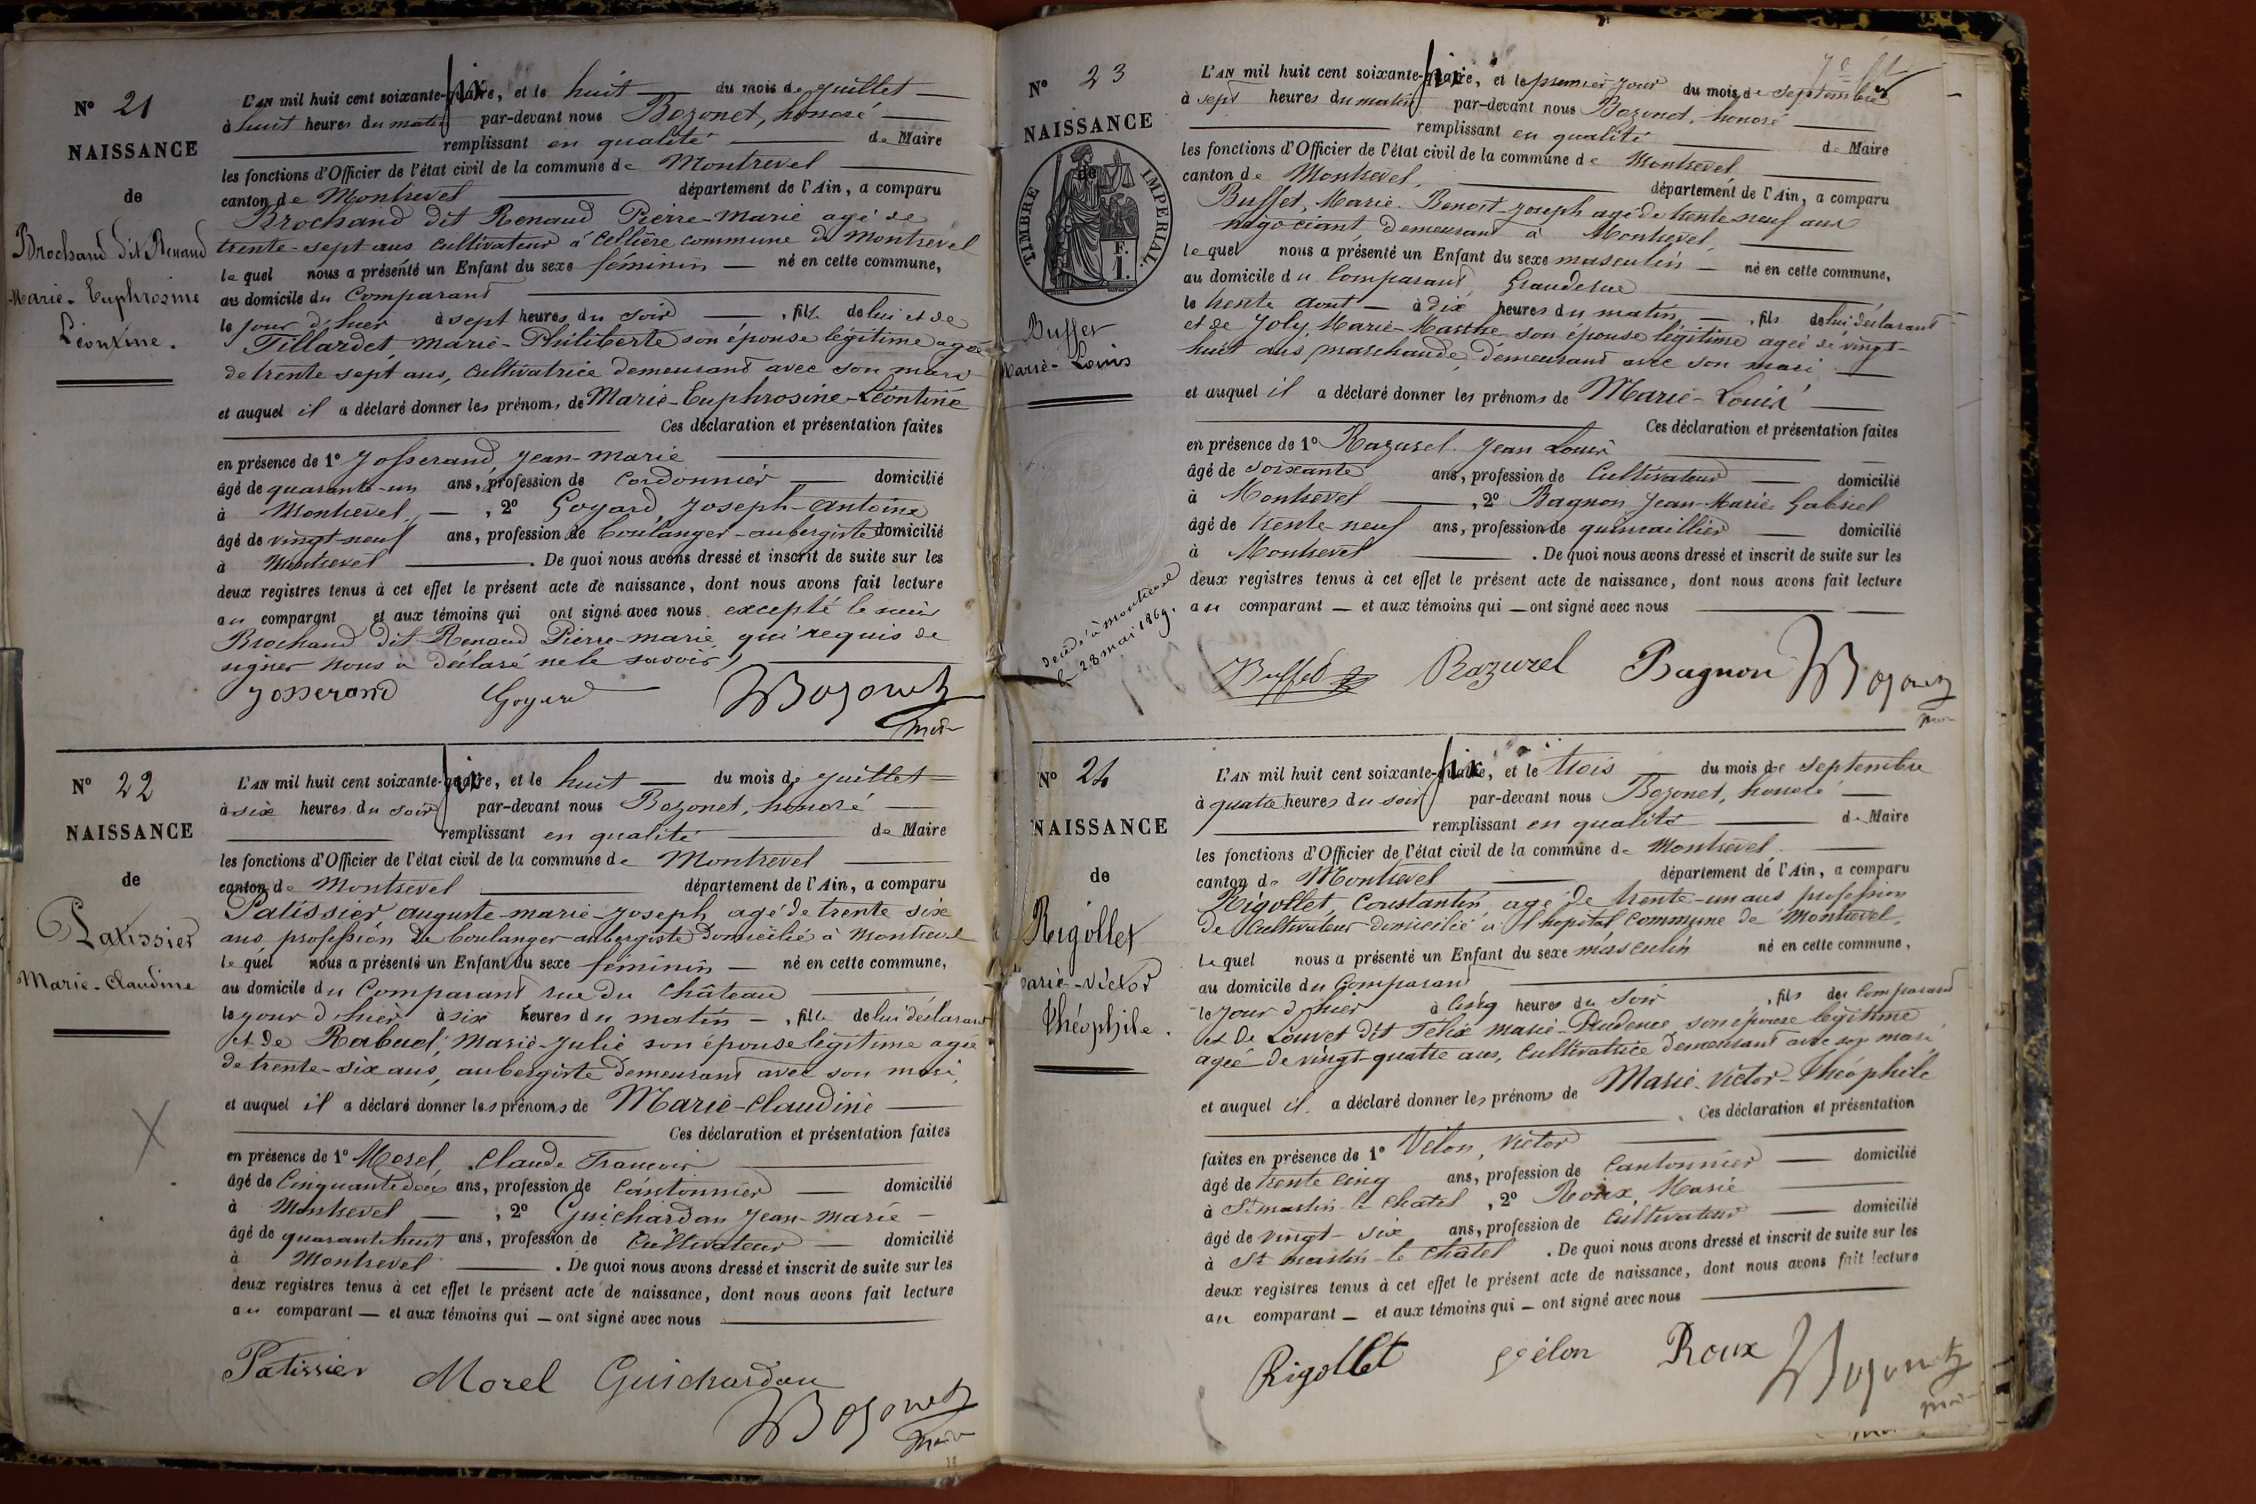 N° 21
NAISSANCE
de
Brochand dit Renaud
Marie-Euphrosine
Léontine.
L'AN mil huit cent soixante-six, et le huit du mois de juillet
à huit heures du matin par-devant nous Bozonet, honoré
remplissant en qualité de Maire
les fonctions d'Officier de l'état civil de la commune de Montrevel
canton de Montrevel département de l'Ain, a comparu
Brochand dit Renaud Pierre-Marie agé de
trente-sept ans cultivateur à Cellière commune de Montrevel
lequel nous a présenté un Enfant du sexe féminin né en cette commune,
au domicile du Comparant
le jour d'hier à sept heures du soir, fille de lui et de
Tillardet, Marie-Philiberte son épouse légitime agée
de trente sept ans, cultivatrice demeurant avec son mari
et auquel il a déclaré donner les prénoms de Marie-Euphrosine-Léontine
Ces déclaration et présentation faites
en présence de 1° Josserand, Jean-Marie
âgé de quarante-un ans, profession de Cordonnier domicilié
à Montrevel, 2° Goyard, Joseph-Antoine
âgé de vingt-neuf ans, profession de boulanger-aubergiste domicilié
à Montrevel. De quoi nous avons dressé et inscrit de suite sur les
deux registres tenus à cet effet le présent acte de naissance, dont nous avons fait lecture
au comparant et aux témoins qui ont signé avec nous excepté le sieur
Brochand dit Renaud Pierre-Marie qui requis de
signer nous a déclaré ne le savoir
Josserand Goyard Bozonet
maire
N° 22
NAISSANCE
de
Patissier
Marie-Claudine
L'AN mil huit cent soixante-six, et le huit du mois de juillet
à six heures du soir par-devant nous Bozonet, honoré
remplissant en qualité de Maire
les fonctions d'Officier de l'état civil de la commune de Montrevel
canton de Montrevel département de l'Ain, a comparu
Patissier, auguste-marie-joseph agé de trente six
ans profession de boulanger-aubergiste domicilié à Montrevel
lequel nous a présenté un Enfant du sexe féminin né en cette commune,
au domicile du Comparant rue du Château
le jour d'hier à six heures du matin, fille de lui déclarant
et de Rabuel, Marie-Julie son épouse légitime agée
de trente-six ans, aubergiste demeurant avec son mari
et auquel il a déclaré donner les prénoms de Marie-Claudine
Ces déclaration et présentation faites
en présence de 1° Morel, Claude François
âgé de Cinquante deux ans, profession de Cantonnier domicilié
à Montrevel, 2° Guichardan Jean-Marie
âgé de quarante huit ans, profession de Cultivateur domicilié
à Montrevel. De quoi nous avons dressé et inscrit de suite sur les
deux registres tenus à cet effet le présent acte de naissance, dont nous avons fait lecture
au comparant et aux témoins qui ont signé avec nous
Patissier Morel Guichardan
Bozonet
maire
N° 23
NAISSANCE
de
TIMBRE IMPERIAL.
F.
1.
Buffet
Marie-Louis
décédé à montrevel
le 28 mai 1869.
L'AN mil huit cent soixante-six, et le premier jour du mois de septembre
à sept heures du matin par-devant nous Bozonet, honoré
remplissant en qualité de Maire
les fonctions d'Officier de l'état civil de la commune de Montrevel
canton de Montrevel, département de l'Ain, a comparu
Buffet, Marie-Benoit-Joseph agé de trente neuf ans
négociant demeurant à Montrevel,
lequel nous a présenté un Enfant du sexe masculin né en cette commune,
au domicile du Comparant Granderue
le trente aout à dix heures du matin, fils de lui déclarant
et de Joly, Marie-Marthe son épouse légitime agée de vingt-
huit ans, marchande, demeurant avec son mari
et auquel il a déclaré donner les prénoms de Marie-Louis
Ces déclaration et présentation faites
en présence de 1° Razurel Jean Louis
âgé de soixante ans, profession de Cultivateur domicilié
à Montrevel, 2° Bagnon, Jean-Marie Gabriel
âgé de trente-neuf ans, profession de quincaillier domicilié
à Montrevel. De quoi nous avons dressé et inscrit de suite sur les
deux registres tenus à cet effet le présent acte de naissance, dont nous avons fait lecture
au comparant et aux témoins qui ont signé avec nous
Buffet Razurel Bagnon Bozonet
N° 24
NAISSANCE
de
Rigollet
Marie-Victor
Théophile.
L'AN mil huit cent soixante-six, et le trois du mois de septembre
à quatre heures du soir par-devant nous Bozonet, honoré
remplissant en qualité de Maire
les fonctions d'Officier de l'état civil de la commune de Montrevel
canton de Montrevel département de l'Ain, a comparu
Rigollet, Constantin agé de trente-un ans profession
de Cultivateur domicilié à l'hopital commune de Montrevel,
lequel nous a présenté un Enfant du sexe masculin né en cette commune,
au domicile du Comparant
le jour d'hier à cinq heures du soir, fils du Comparant
et de Louvet dit Félix Marie-Prudence, son épouse légitime
agée de vingt-quatre ans, cultivatrice demeurant avec son mari
et auquel il a déclaré donner les prénoms de Marie-Victor-Théophile
Ces déclaration et présentation
faites en présence de 1° Vélon, Victor
âgé de trente cinq ans, profession de Cantonnier domicilié
à St martin-le Chatel, 2° Roux, Marie
âgé de vingt-six ans, profession de Cultivateur domicilié
à St martin-le Châtel. De quoi nous avons dressé et inscrit de suite sur les
deux registres tenus à cet effet le présent acte de naissance, dont nous avons fait lecture
au comparant et aux témoins qui ont signé avec nous
Rigollet Vélon Roux Bozonet